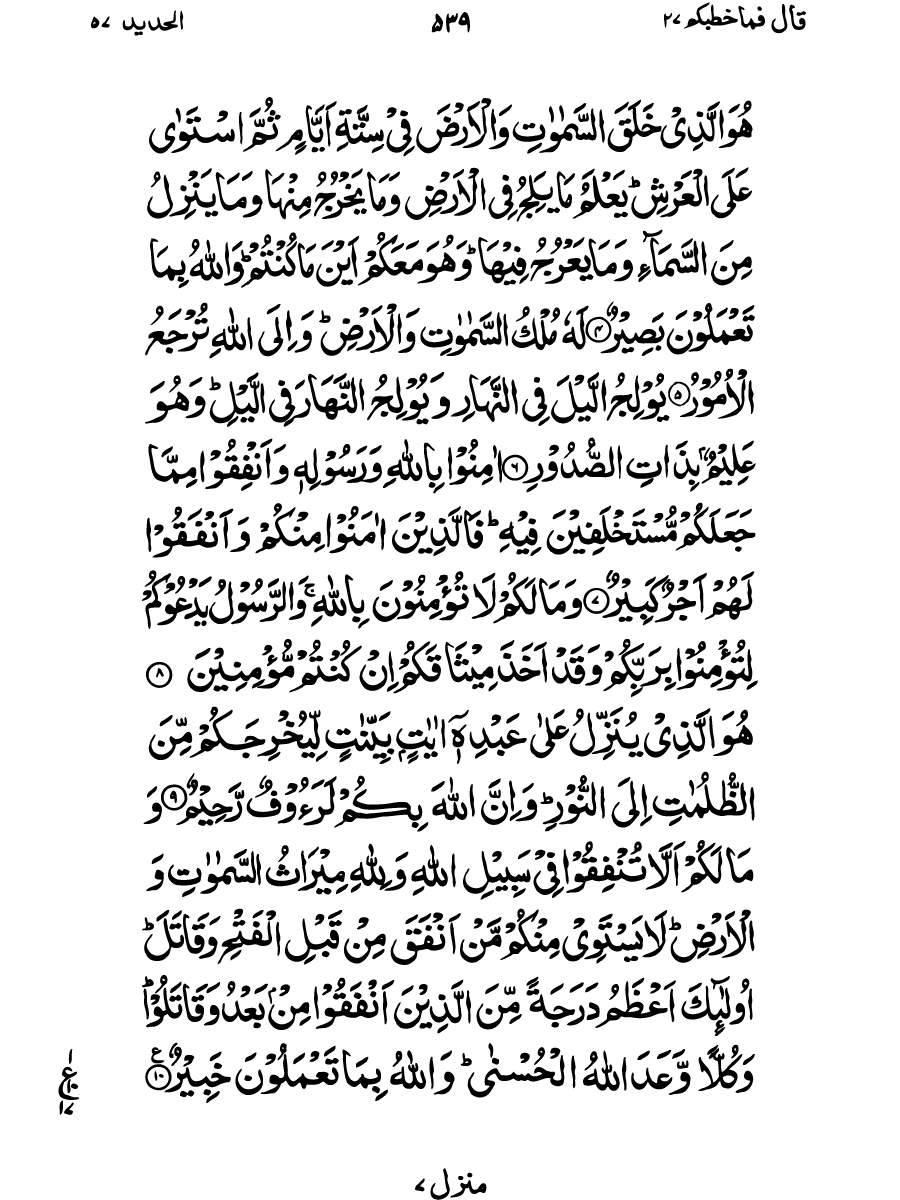 قال فما خطبكم ٢٧ ٥٣٩ الحديد ٥٧
هُوَ الَّذِىْ خَلَقَ السَّمٰوٰتِ وَالْاَرْضَ فِىْ سِتَّةِ اَيَّامٍ ثُمَّ اسْتَوٰى
عَلَى الْعَرْشِ ؕ يَعْلَمُ مَا يَلِجُ فِى الْاَرْضِ وَمَا يَخْرُجُ مِنْهَا وَمَا يَنْزِلُ
مِنَ السَّمَآءِ وَمَا يَعْرُجُ فِيْهَا ؕ وَهُوَ مَعَكُمْ اَيْنَ مَا كُنْتُمْ ؕ وَاللّٰهُ بِمَا
تَعْمَلُوْنَ بَصِيْرٌ ۞۴ لَهٗ مُلْكُ السَّمٰوٰتِ وَالْاَرْضِ ؕ وَاِلَى اللّٰهِ تُرْجَعُ
الْاُمُوْرُ ۞۵ يُوْلِجُ الَّيْلَ فِى النَّهَارِ وَيُوْلِجُ النَّهَارَ فِى الَّيْلِ ؕ وَهُوَ
عَلِيْمٌۢ بِذَاتِ الصُّدُوْرِ ۞۶ اٰمِنُوْا بِاللّٰهِ وَرَسُوْلِهٖ وَاَنْفِقُوْا مِمَّا
جَعَلَكُمْ مُّسْتَخْلَفِيْنَ فِيْهِ ؕ فَالَّذِيْنَ اٰمَنُوْا مِنْكُمْ وَاَنْفَقُوْا
لَهُمْ اَجْرٌ كَبِيْرٌ ۞۷ وَمَا لَكُمْ لَا تُؤْمِنُوْنَ بِاللّٰهِ ۚ وَالرَّسُوْلُ يَدْعُوْكُمْ
لِتُؤْمِنُوْا بِرَبِّكُمْ وَقَدْ اَخَذَ مِيْثَاقَكُمْ اِنْ كُنْتُمْ مُّؤْمِنِيْنَ ۞۸
هُوَ الَّذِىْ يُنَزِّلُ عَلٰى عَبْدِهٖۤ اٰيٰتٍۭ بَيِّنٰتٍ لِّيُخْرِجَكُمْ مِّنَ
الظُّلُمٰتِ اِلَى النُّوْرِ ؕ وَاِنَّ اللّٰهَ بِكُمْ لَرَءُوْفٌ رَّحِيْمٌ ۞۹ وَ
مَا لَكُمْ اَلَّا تُنْفِقُوْا فِىْ سَبِيْلِ اللّٰهِ وَلِلّٰهِ مِيْرَاثُ السَّمٰوٰتِ وَ
الْاَرْضِ ؕ لَا يَسْتَوِىْ مِنْكُمْ مَّنْ اَنْفَقَ مِنْ قَبْلِ الْفَتْحِ وَقَاتَلَ ؕ
اُولٰٓئِكَ اَعْظَمُ دَرَجَةً مِّنَ الَّذِيْنَ اَنْفَقُوْا مِنْۢ بَعْدُ وَقَاتَلُوْا ؕ
وَكُلًّا وَّعَدَ اللّٰهُ الْحُسْنٰى ؕ وَاللّٰهُ بِمَا تَعْمَلُوْنَ خَبِيْرٌ ۞۱۰ ع
۱ ع ۱۰ ۱۷
منزل ۷